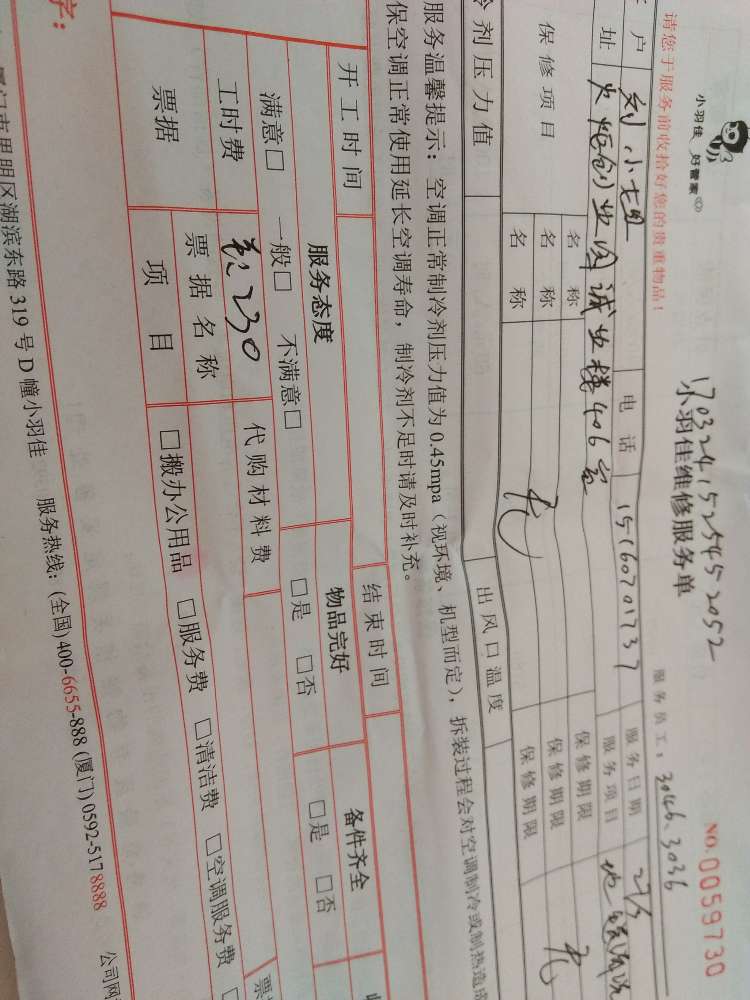 小羽佳 好管家
1703241525452052
小羽佳维修服务单
NO.0059730
请您于服务前收拾好您的贵重物品！
服务员工：3046、3036
户 刘小姐 电话 15160701737 服务日期 27/3
址 火炬创业园诚业楼406室 服务项目
保修项目 名称 保修期限
名称 保修期限
名称 无 保修期限 无
冷剂压力值 出风口温度
服务温馨提示：空调正常制冷剂压力值为0.45mpa（视环境、机型而定），拆装过程会对空调制冷或制热造成
保空调正常使用延长空调寿命，制冷剂不足时请及时补充。
开工时间 结束时间
服务态度 物品完好 备件齐全
满意□ 一般□ 不满意□ □是 □否 □是 □否
工时费 230 代购材料费
票据 票据名称
项目 □搬办公用品 □服务费 □清洁费 □空调服务费
字：
厦门市思明区湖滨东路319号D幢小羽佳 服务热线：(全国)400-6655-888 (厦门)0592-5178888 公司网